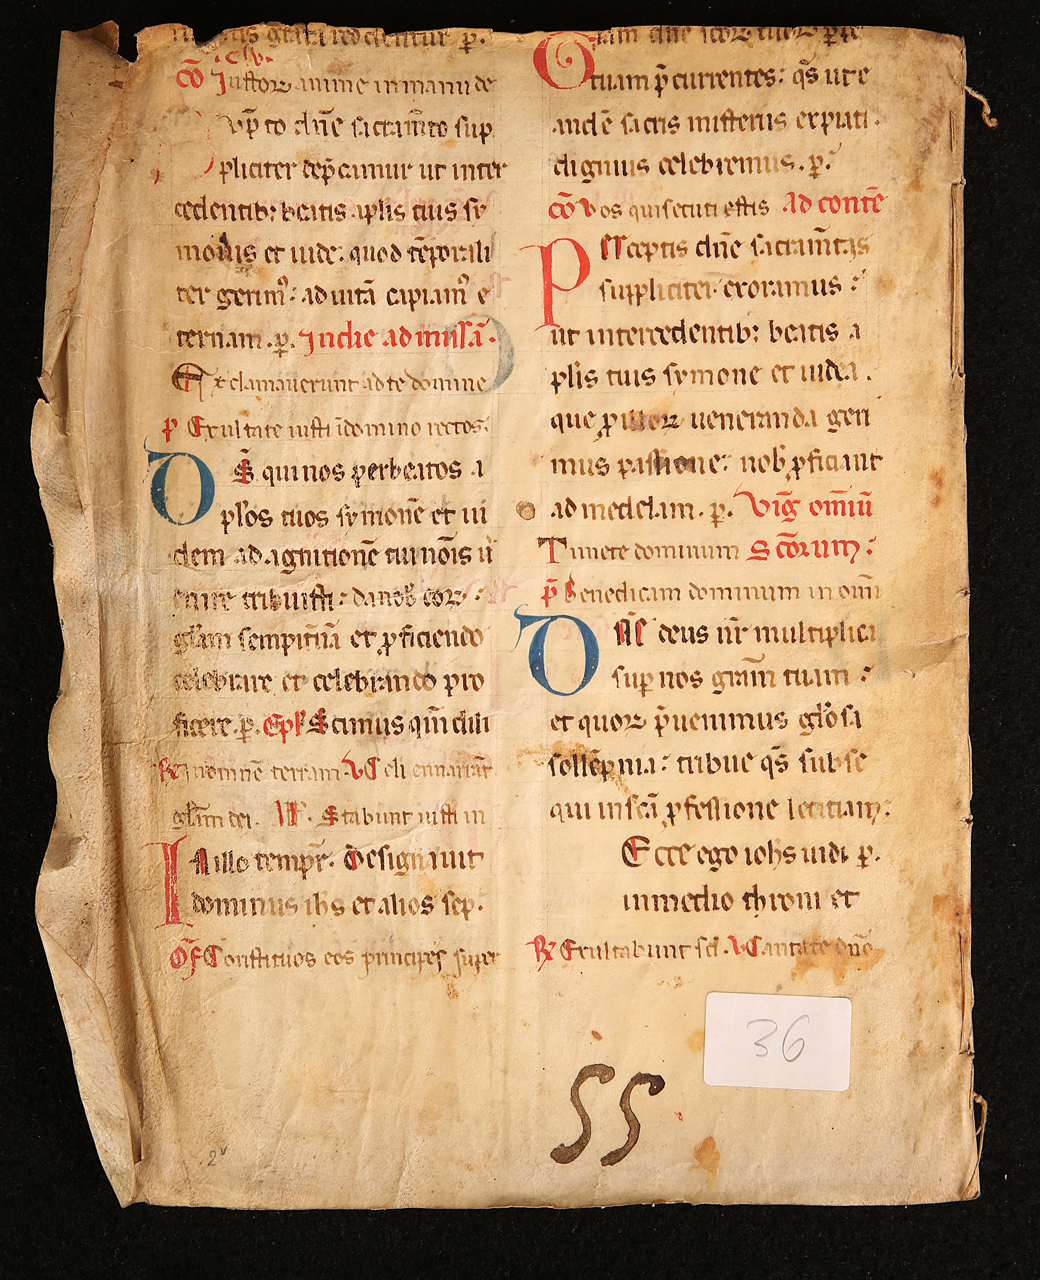 gr̄a reddentur p̱.
c̄o Justoꝝ anime in manu de
up̄to dn̄e sacram̄to sup
pliciter dep̄camur ut inter
cedentibꝫ beatis ap̄lis tuis sy
monis et iude: quod tēporali
ter gerimꝰ: ad uitā capiamꝰ e
ternam. p̱. In die ad missā.
Exclamauerunt ad te domine
p Exultate iusti ī domino rectos.
DS̄ qui nos per beatos a
pl̄os tuos symonē et iu
dem ad agnitionē tui nōis
uenire tribuisti: da nob̄ eoꝝ:
gl̄am sempit̄nā et ꝓficiendo
celebrare et celebrando pro
ficere. p̱. Ep̄l Scimus qm̄ dili
R̄ In omnē terram. V Celi enarrāt
gl̄am dei. Stabunt iusti in
In illo temp̄r. Designauit
dominus ih̄s et alios sep.
Of̄ Constitues eos principes super
tuam p̄currentes: q̄s ut e
andē sacris misteriis expiati.
dignius celebremus. p̱.
c̄o Vos qui secuti estis Ad conte
PERceptis dn̄e sacram̄tis
suppliciter exoramus:
ut intercedentibꝫ beatis a
pl̄is tuis symone et iuda.
que ꝓ illoꝝ ueneranda geri
mus passione: nob̄ ꝓficiant
ad medelam. p̱. Viḡ om̄iū
Timete dominum Sc̄orum:
p̄ Benedicam dominum in om̄i
DNE deus nr̄ multiplica
sup nos gr̄am tuam:
et quoꝝ p̄uenimus gl̄osa
sollēpnia: tribue q̄s subse
qui in sc̄a ꝓfessione letitiam:
Ecce ego ioh̄s uidi p̱.
in medio throni et
R̄ Exultabunt sc̄i V Cantate dn̄o
36
SS
2v